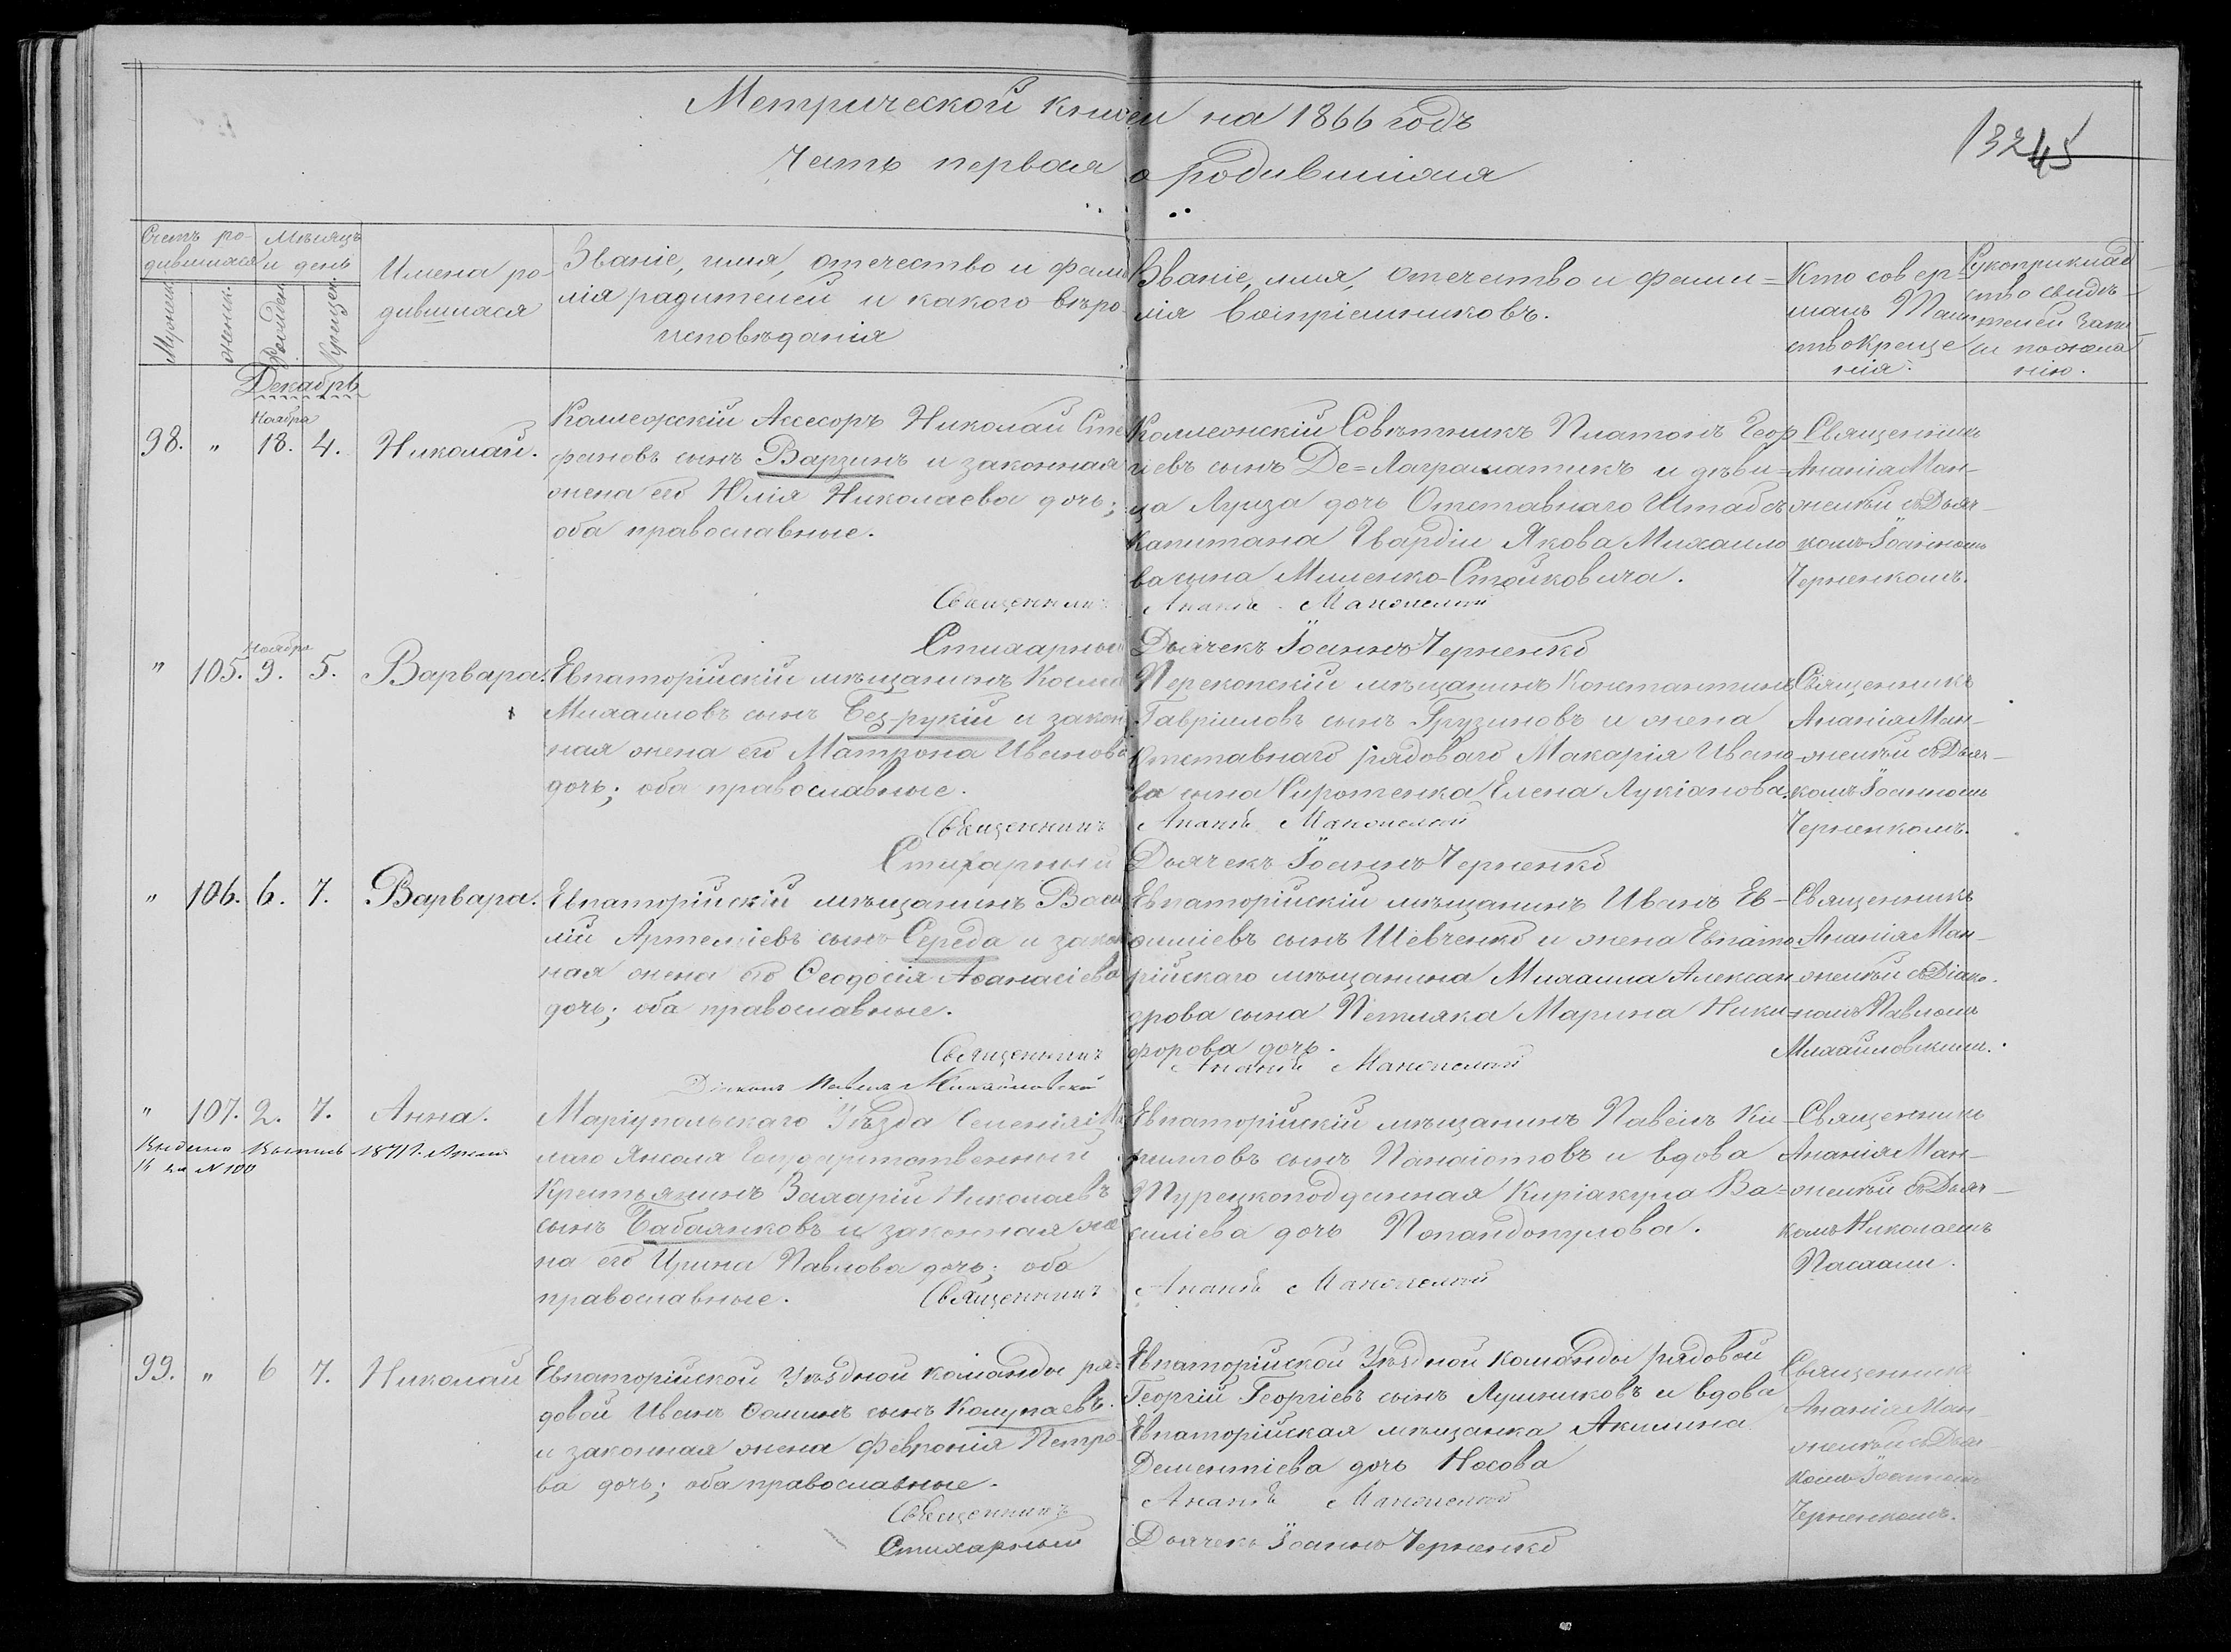 Метрической книги на 1866 годъ
Часть первая о родившихся
13245
Счетъ ро-
дившихся
Мѣсяцъ
и день
Мужеск.
женск.
Рожден.
Крещен.
Имена ро-
дившихся
Званіе, имя, отечество и фами
лія родителей и какого вѣро-
исповѣданія
Званіе, имя, отечество и фами=
лія Воспріемниковъ.
Кто совер-
шалъ Таин
ство Креще
нія.
Рукоприклад
ство свидѣ-
телей запи
си по жела
нію.
Декабрь
Ноября
98. " 18. 4. Николай.
Коллежскій Ассесоръ Николай Сте
фановъ сынъ Варзинъ и законная
жена его Юлія Николаева дочь;
оба православные.
Коллежскій Совѣтникъ Платонъ Геор
гіевъ сынъ Де=Лаграматикъ и дѣви=
ца Луиза дочь Отставнаго Штабсъ
Капитана Гвардіи Якова Михайло
ва сына Миленко-Стойковича.
Священникъ
Ананія Ман-
желѣй съ Дьяч-
комъ Іоанномъ
Черненкомъ.
Священникъ Ананій
Стихарный Дьячекъ Іоаннъ Черненко
Ноября
" 105. 9. 5. Варвара.
Евпаторійскій мѣщанинъ Косма
Михаиловъ сынъ Без-рукій и закон
ная жена его Матрона Иванова
дочь; оба православные.
Перекопскій мѣщанинъ Константинъ
Гавріиловъ сынъ Грузиновъ и жена
Отставнаго рядоваго Макарія Ивано
ва сына Сиротенка Елена Лукіанова.
Священникъ
Ананія Ман-
желѣй съ Дьяч-
комъ Іоанномъ
Черненкомъ.
Священникъ Ананій
Стихарный Дьячекъ Іоаннъ Черненко
" 106. 6. 7. Варвара.
Евпаторійскій мѣщанинъ Васи
лій Артеміевъ сынъ Середа и закон
ная жена его Ѳеодосія Аѳанасіева
дочь; оба православные.
Евпаторійскій мѣщанинъ Иванъ Ев-
ѳиміевъ сынъ Шевченко и жена Евпато
рійскаго мѣщанина Михаила Алексан
дрова сына Петляка Марина Ники=
форова дочь.
Священникъ
Ананія Ман-
желѣй съ Діако-
номъ Павломъ
Михайловскимъ.
Священникъ Ананій
Діаконъ Павелъ Михайловскій
" 107. 2. 7. Анна.
Выдано Выпись 1871 г. Апреля
16 за N 100
Маріупольскаго Уѣзда селенія
лаго Янсоля Государственный
Крестьянинъ Захарій Николаевъ
сынъ Бабаянковъ и законная же
на его Ирина Павлова дочь; оба
православные.
Евпаторійскій мѣщанинъ Павелъ Ки-
рилловъ сынъ Панаіотовъ и вдова
Турецкоподданная Киріакула Ва=
силіева дочь Попандопулова.
Священникъ
Ананія Ман-
желѣй съ Дьяч-
комъ Николаемъ
Священникъ Ананій
99. " 6 7. Николай
Евпаторійской Уѣздной команды ря-
довой Иванъ Ѳоминъ сынъ Колупаевъ.
и законная жена Февронія Петро-
ва дочь; оба православные.
Евпаторійской Уѣздной Команды рядовой
Георгій Георгіевъ сынъ Лушниковъ и вдова
Евпаторійская мѣщанка Акилина
Дементіева дочь Носова
Священника
Ананія Ман
желѣй съ Дьяч
комъ Іоанномъ
Черненкомъ.
Священникъ Ананій
Стихарный Дьячекъ Іоаннъ Черненко